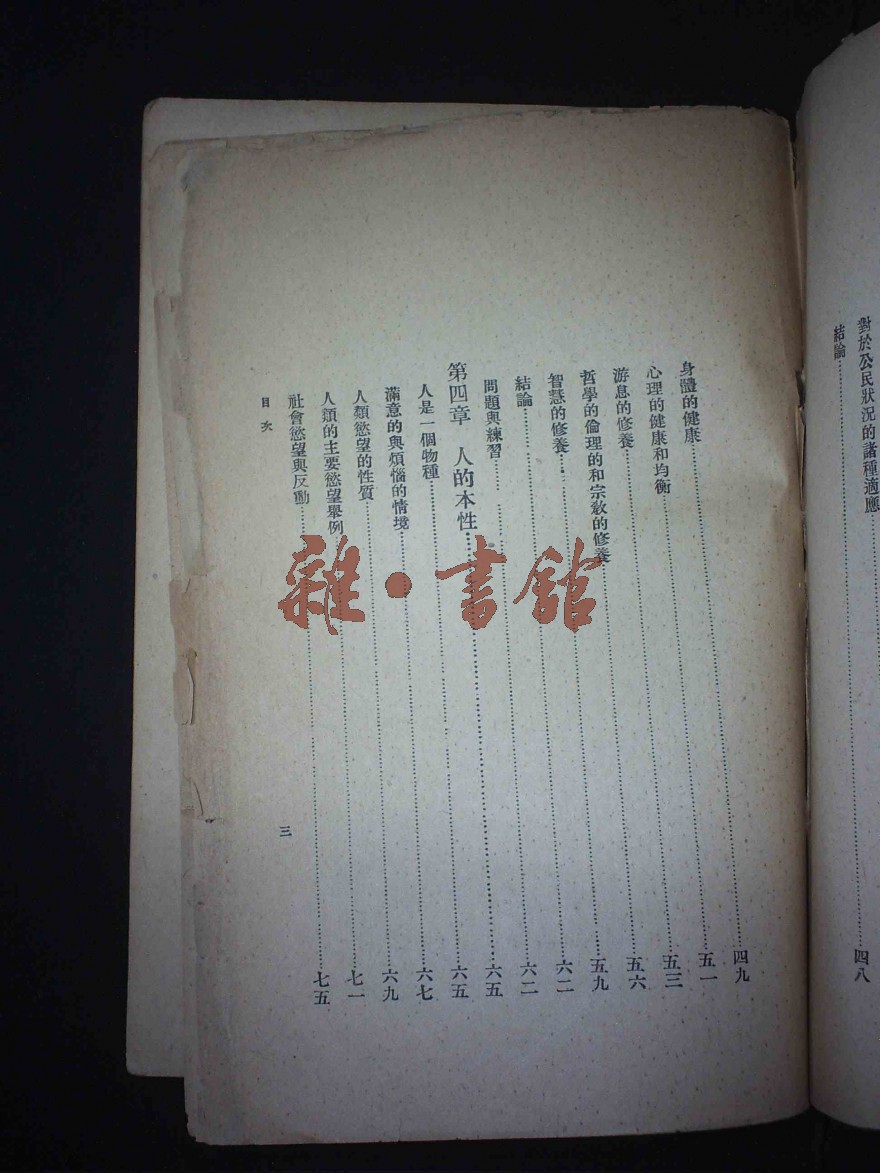 對於公民狀況的諸種適應
結論……四八
身體的健康……四九
心理的健康和均衡……五一
游息的修養……五三
哲學的倫理的和宗教的修養……五六
智慧的修養……五九
結論……六二
問題與練習……六二
第四章 人的本性……六五
人是一個物種……六五
滿意的與煩惱的情境……六七
人類慾望的性質……六九
人類的主要慾望舉例……七一
社會慾望與反動……七五
目次
三
雜·書館